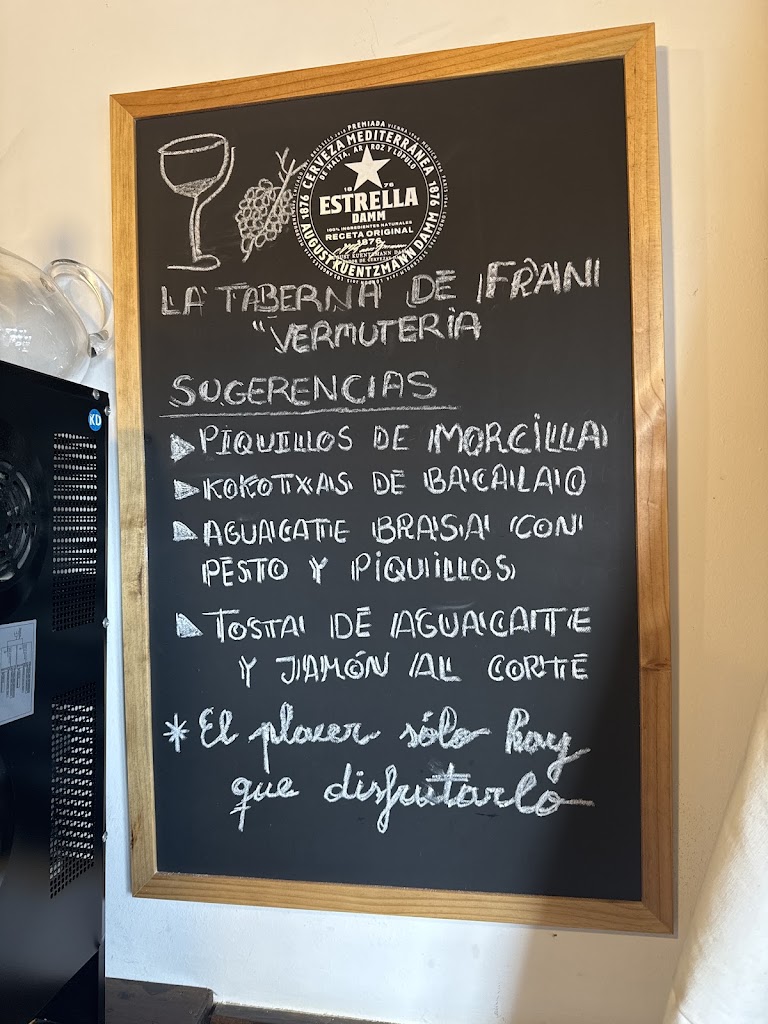 PREMIADA
CERVEZA MEDITERRÁNEA
DE MALTA, ARROZ Y LÚPULO
1876 1876
18 76
ESTRELLA
DAMM
100% INGREDIENTES NATURALES
RECETA ORIGINAL
1876
AUGUST KUENTZMANN DAMM
LA TABERNA DE FRAN
"VERMUTERIA
SUGERENCIAS
PIQUILLOS DE MORCILLA
KOKOTXAS DE BACALAO
AGUACATE BRASA CON
PESTO Y PIQUILLOS
TOSTA DE AGUACATE
Y JAMÓN AL CORTE
* El placer sólo hay
que disfrutarlo
KD